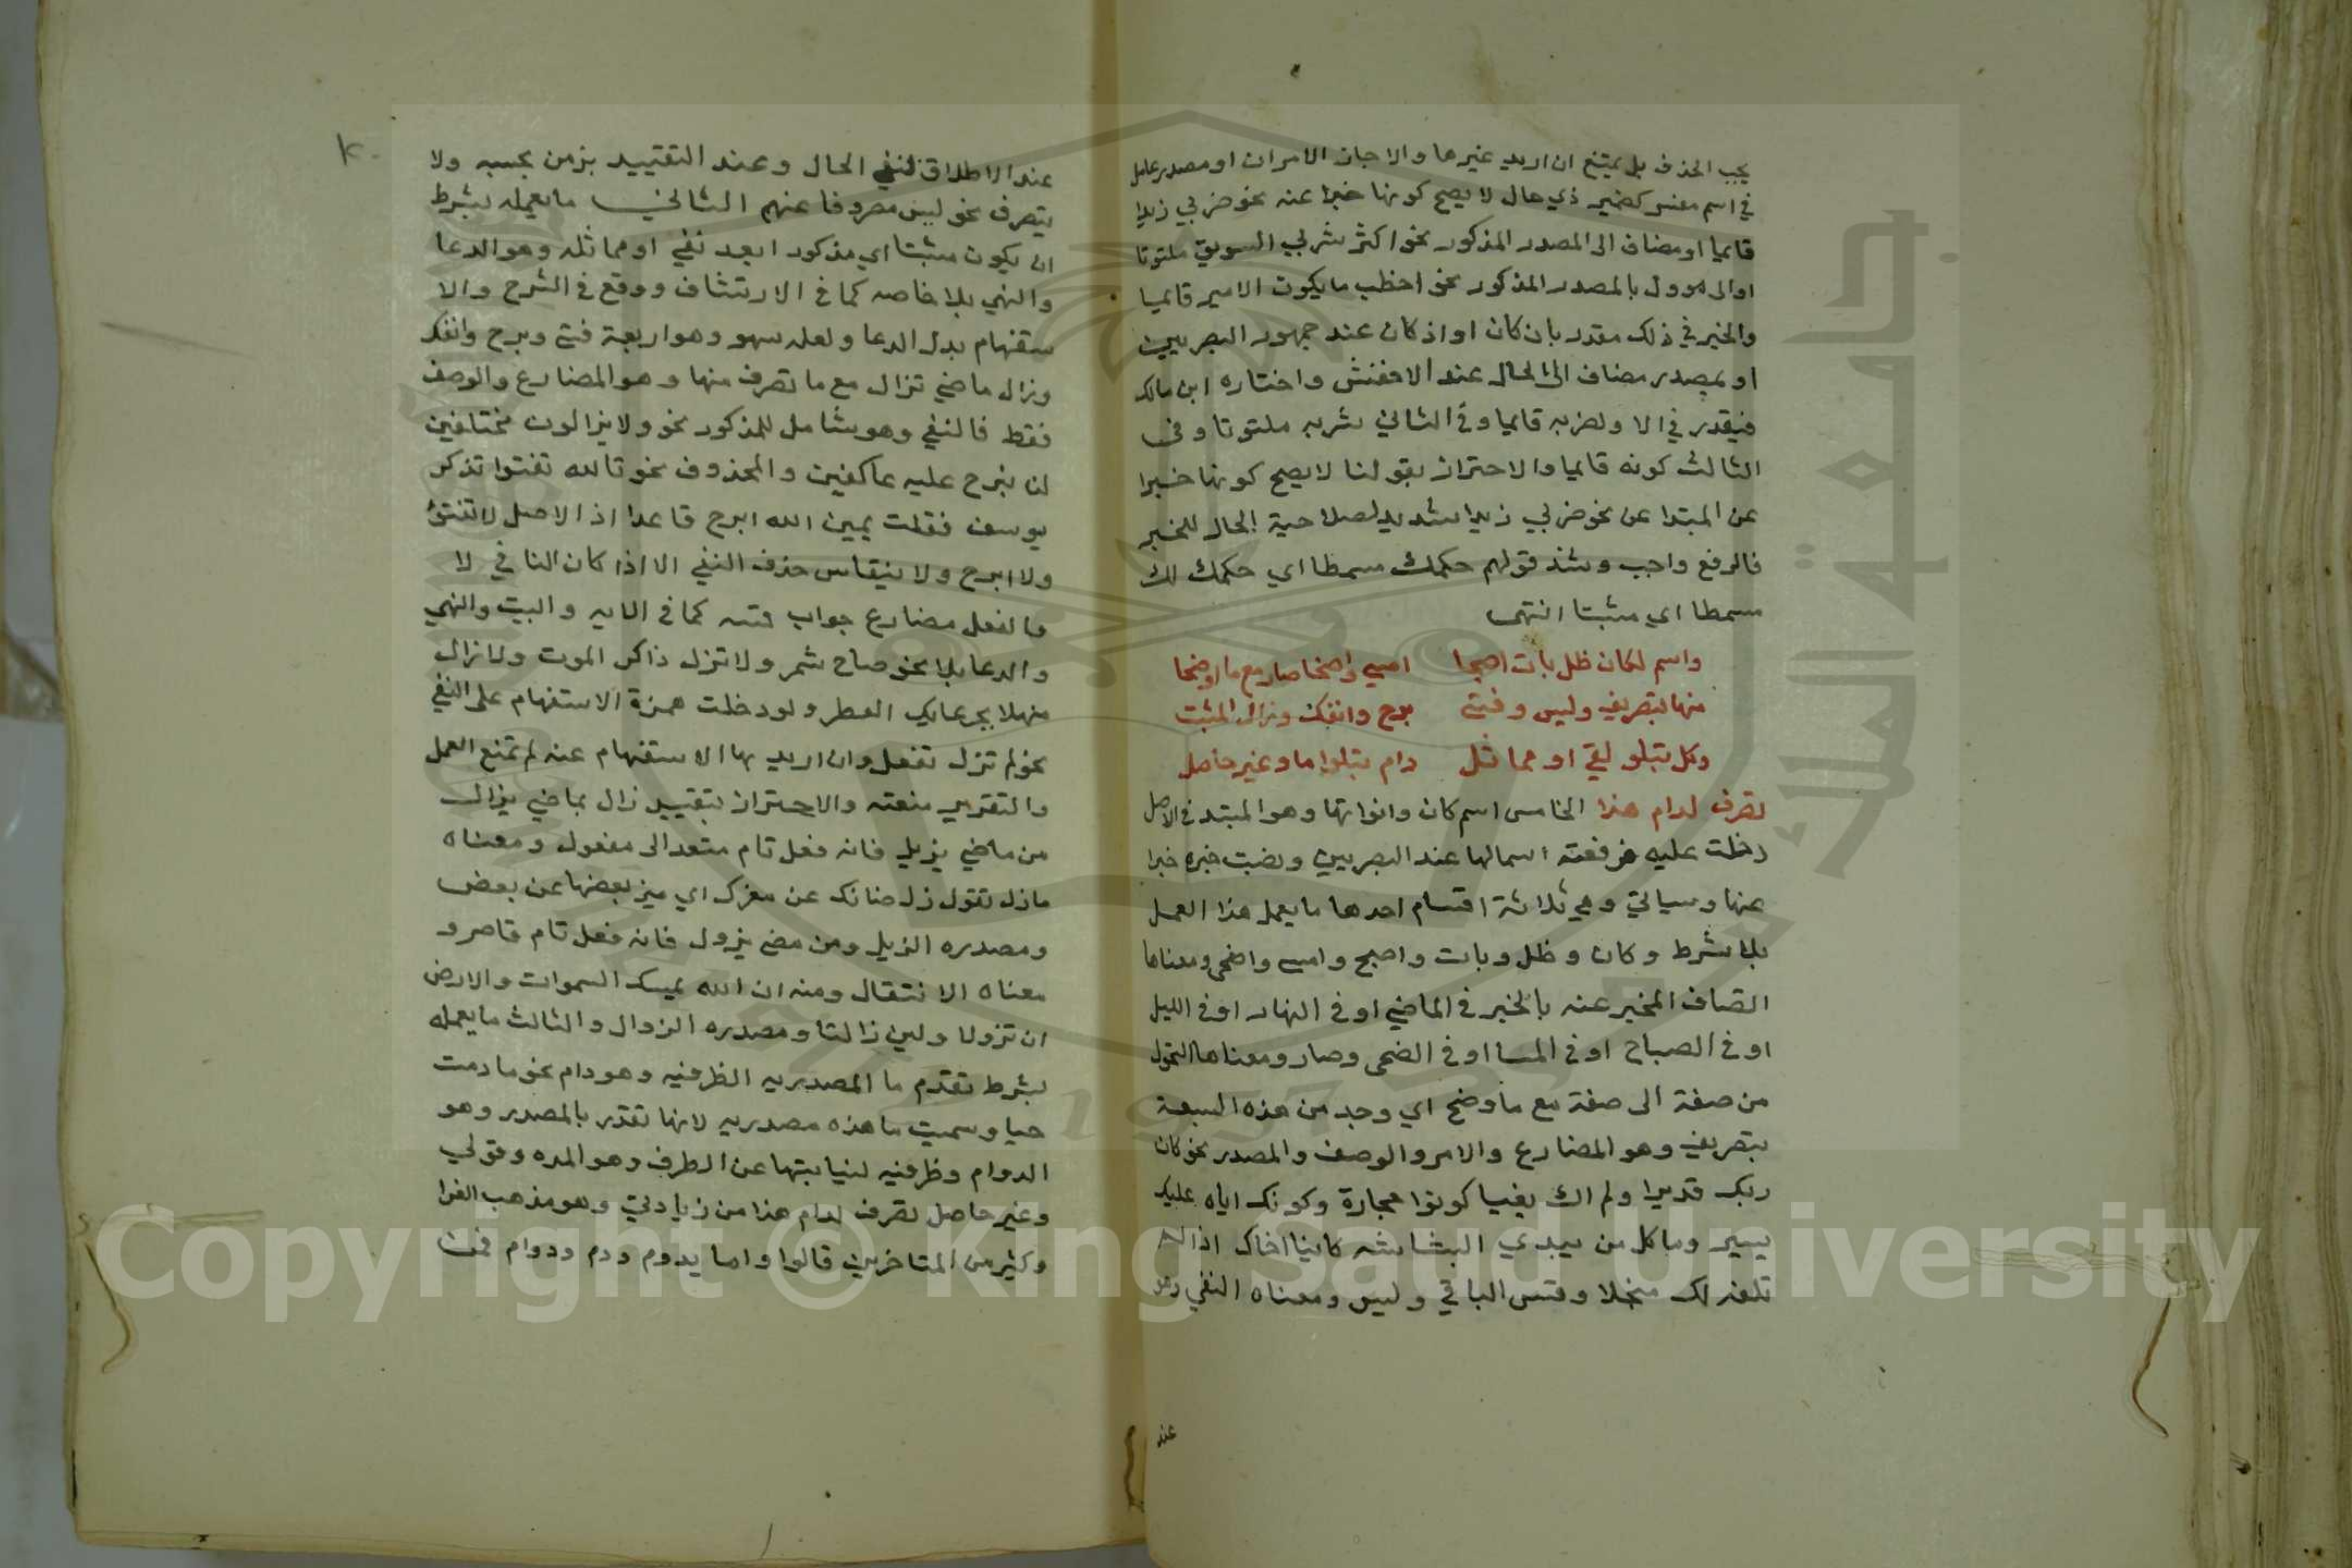 يجب الحذف بل يمتنع ان اريد غيرها والا جاز الامران او مصدر عامل
في اسم مفسر كضمير ذي حال لا يصح كونها خبرا عنه نحو ضربي زيدا
قايما او مضاف الى المصدر المذكور نحو اكثر شربي السويق ملتوتا
او الى موول بالمصدر المذكور نحو اخطب ما يكون الامير قايما
والخبر في ذلك مقدر باذ كان او اذ كان عند جمهور البصريين
او بمصدر مضاف الى الحال عند الاخفش واختاره ابن مالك
فيقدر في الاول ضربه قايما وفي الثاني شربه ملتوتا وفي
الثالث كونه قايما والاحتراز بقولنا لا يصح كونها خبرا
عن المبتدا عن نحو ضربي زيدا شديد لصلاحية الحال للخبر
فالرفع واجب وشذ قولهم حكمك مسمطا اي حكمك لك
مسمطا اي مثبتا انتهى
واسم لكان ظل بات اصبحا امسى واضحا صار مع ما اوضحا
منها بتصريف وليس وفتئ برح وانفك وزال المثبت
وكل يتلو نفي او مماثل دام يتلوا ما وغير حاصل
تصرف لدام هذا الخامس اسم كان واخواتها وهو المبتد في الاصل
دخلت عليه فرفعته اسما لها عند البصريين ونصبت خبره خبرا
عنها وسياتي وهي ثلاثة اقسام احدها ما يعمل هذا العمل
بلا شرط وكان وظل وبات واصبح وامسى واضحى ومعناها
اتصاف المخبر عنه بالخبر في الماضي او في النهار او في الليل
او في الصباح او في المسا او في الضحى وصار ومعناها التحول
من صفة الى صفة مع ما وضح اي وجد من هذه السبعة
بتصريف وهو المضارع والامر والوصف والمصدر نحو كان
ربك قديرا ولم اك بغيا كونوا حجارة وكونك اياه عليك
يسير وما كل من يبدي البشاشه كاينا اخاك اذا لم
تلفه لك منجدا وقس الباقي وليس ومعناه النفي وهو
عند
عند الاطلاق لنفي الحال وعند التقييد بزمن بحسبه ولا
يتصرف نحو ليس مصروفا عنهم الثاني ما يعمله بشرط
ان يكون مثبتا اي مذكور ا بعد نفي او مماثله وهو الدعا
والنهي بلا خاصه كما في الارتشاف ووقع في الشرح والا
ستفهام بدل الدعا ولعله سهو وهو اربعة فتئ وبرح وانفك
وزال ماضي تزال مع ما تصرف منها وهو المضارع والوصف
فقط فالنفي وهو شامل للمذكور نحو ولا يزالون مختلفين
لن نبرح عليه عاكفين والمحذوف نحو تالله تفتوا تذكر
يوسف فقلت يمين الله ابرح قاعدا اذ الاصل لا تفتؤ
ولا ابرح ولا ينقاس حذف النفي الا اذا كان النافي لا
والفعل مضارع جواب قسم كما في الايه والبيت والنهي
والدعا بلا نحو صاح شمر ولا تزل ذاكر الموت ولا زال
منهلا بجرعايك القطر ولو دخلت همزة الاستفهام على النفي
نحو لم تزل تفعل وان اريد بها الاستفهام عنه لم تمنع العمل
والتقرير منعته والاحتراز بتقييد زال بماضي يزال
من ماضي يزيل فانه فعل تام متعد الى مفعول ومعناه
ماز تقول زل ضانك عن معزك اي ميز بعضها عن بعض
ومصدره الزيل ومن مضى يزول فانه فعل تام قاصر و
معناه الانتقال ومنه ان الله يمسك السموات والارض
ان تزولا ولين زالتا ومصدره الزوال والثالث ما يعمله
بشرط تقدم ما المصدريه الظرفيه وهو دام نحو ما دمت
حيا وسميت ما هذه مصدريه لانها تقدر بالمصدر وهو
الدوام وظرفيه لنيابتها عن الظرف وهو المده وقولي
وغير حاصل تصرف لدام هذا من زيادتي وهو مذهب الفرا
وكثير من المتاخرين قالوا واما يدوم ودم ودوام فمن
Copyright © King Saud University
جامعة الملك
1957